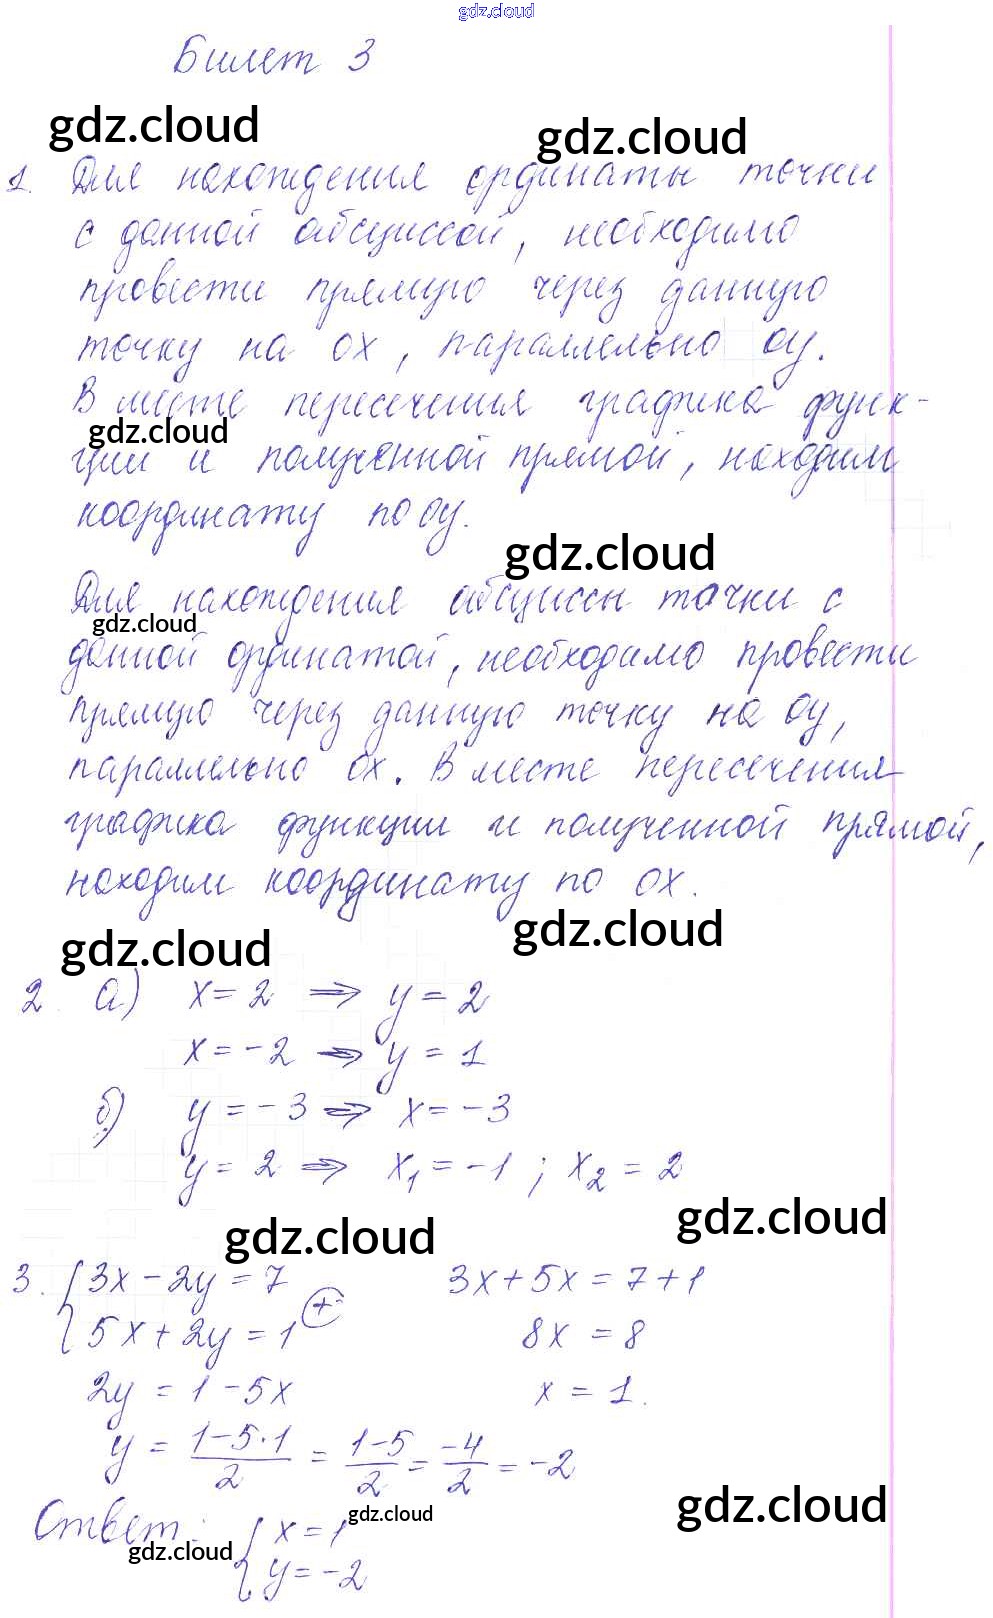 gdz.cloud
Билет 3
gdz.cloud gdz.cloud
1. Для нахождения ординаты точки
с данной абсциссой, необходимо
провести прямую через данную
точку на ох, параллельно оу.
В месте пересечения графика функ-
gdz.cloud
ции и полученной прямой, находим
координату по оу.
gdz.cloud
Для нахождения абсциссы точки с
gdz.cloud
данной ординатой, необходимо провести
прямую через данную точку на оу,
параллельно ох. В месте пересечения
графика функции и полученной прямой,
находим координату по ох.
gdz.cloud gdz.cloud
2. а) x = 2 ⇒ y = 2
x = -2 ⇒ y = 1
б) y = -3 ⇒ x = -3
y = 2 ⇒ x₁ = -1 ; x₂ = 2
gdz.cloud gdz.cloud
3. { 3x - 2y = 7 3x + 5x = 7 + 1
5x + 2y = 1 (+) 8x = 8
2y = 1 - 5x x = 1.
y = (1-5·1)/2 = (1-5)/2 = -4/2 = -2
gdz.cloud gdz.cloud
Ответ: { x = 1
gdz.cloud
y = -2